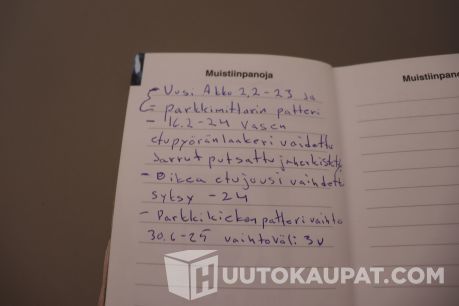 Muistiinpanoja
Muistiinpano
- Uusi Akku 2,2-23 ja
parkkimittarin patteri
- 16.2-24 Vasen
etupyöränlaakeri vaihdettu
Jarrut putsattu ja herkistetty
- Oikea etujousi vaihdettu
syksy -24
- Parkkikiekon patteri vaihto
30.6-25 vaihtoväli 3v
HUUTOKAUPAT.COM